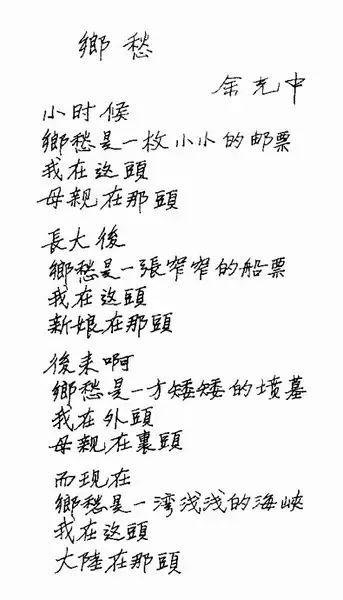 鄉愁
余光中
小时候
鄉愁是一枚小小的邮票
我在这頭
母親在那頭
長大後
鄉愁是一張窄窄的船票
我在这頭
新娘在那頭
後来啊
鄉愁是一方矮矮的坟墓
我在外頭
母親在裏頭
而现在
鄉愁是一湾浅浅的海峡
我在这頭
大陸在那頭